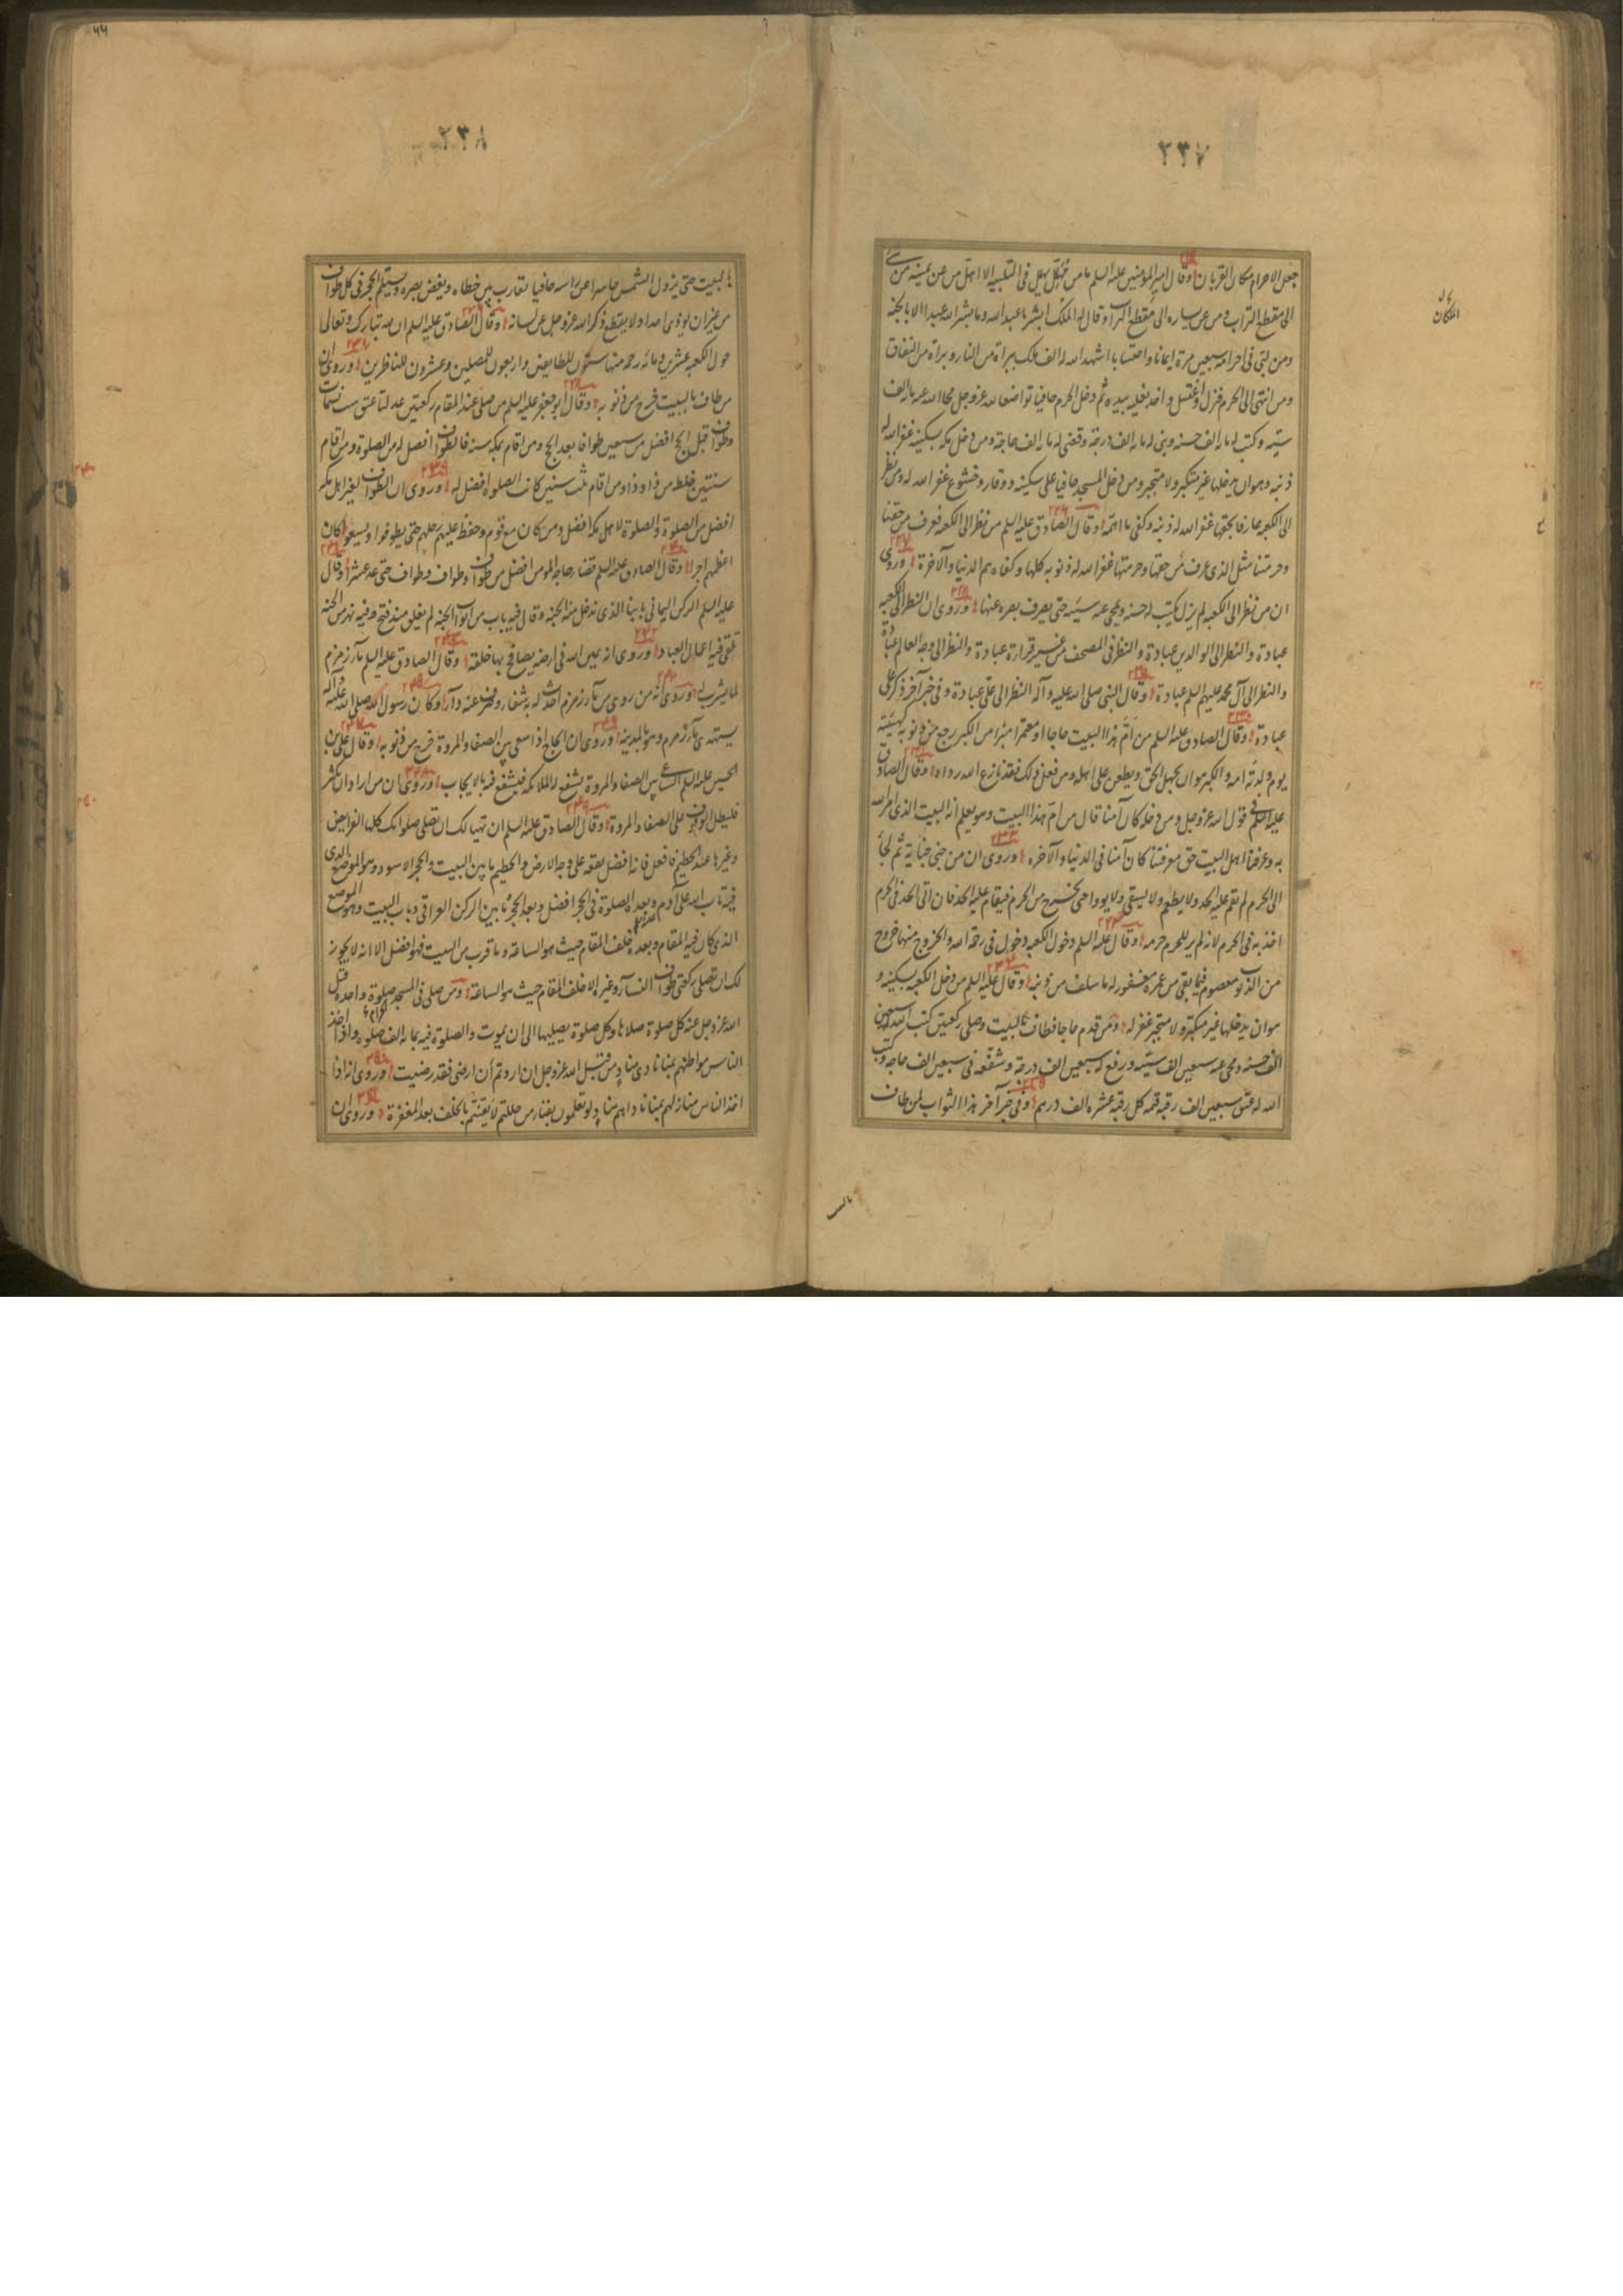 ٢٣٧
جعل الاحرام مكان القربان وقال امير المؤمنين عليه السلم ما من مُهِلّ يهل في التلبية الا اهل من عن يمينه من شئ
الى مقطع التراب ومن عن يساره الى مقطع التراب وقال له الملك ابشر يا عبد الله وما يبشر الله عبدا الا بالجنة
ومن لبى في احرامه سبعين مرة ايمانا واحتسابا اشهد الله له الف ملك ببراة من النار وبراة من النفاق
ومن انتهى الى الحرم فنزل واغتسل واخذ نعليه بيده ثم دخل الحرم حافيا تواضعا لله عز وجل محا الله عنه ماية الف
سيئة وكتب له ماية الف حسنة وبنى له ماية الف درجة وقضى له ماية الف حاجة ومن دخل مكة بسكينة غفر الله له
ذنبه وهو ان يدخلها غير متكبر ولا متجبر ومن دخل المسجد حافي على سكينة ووقار وخشوع غفر الله له ومن نظر
الى الكعبة عارفا بحقها غفر الله له ذنبه وكفى ما اهمّه وقال الصادق عليه السلم من نظر الى الكعبة فعرف من حقنا
وحرمتنا مثل الذي عرف من حقها وحرمتها غفر الله له ذنوبه كلها وكفاه هم الدنيا والآخرة وروى
ان من نظر الى الكعبة لم يزل يكتب له حسنة ويمحى عنه سيئة حتى يصرف بصره عنها وروى ان النظر الى الكعبة
عبادة والنظر الى الوالدين عبادة والنظر في المصحف من غير قراءة عبادة والنظر الى وجه العالم عبادة
والنظر الى آل محمد عليهم السلم عبادة وقال النبي صلى الله عليه وآله النظر الى علي عبادة وفي خبر آخر ذكر علي
عبادة وقال الصادق عليه السلم من اَمَّ هذا البيت حاجا او معتمرا مبرّأ من الكبر رجع من ذنوبه كهيئته
يوم ولدته امه والكبر هو ان يجهل الحق ويطعن على اهله ومن فعل ذلك فقد نازع الله رداه وقال الصادق
عليه السلم في قول الله عز وجل ومن دخله كان آمنا قال من امّ هذا البيت وهو يعلم انه البيت الذي امر الله
به وعرفنا اهل البيت حق معرفتنا كان آمنا في الدنيا والآخرة وروى ان من جنى جناية ثم لجأ
الى الحرم لم تقم عليه الحد ولا يطعم ولا يسقى ولا يووا حتى يخرج من الحرم فيقام عليه الحد فان اتى الحد في الحرم
اخذ به في الحرم لانه لم ير للحرم حرمة وقال عليه السلم دخول الكعبة دخول في رحمة الله والخروج منها خروج
من الذنوب معصوم فيما بقي من عمره مغفور له ما سلف من ذنوبه وقال عليه السلم من دخل الكعبة بسكينة و
هو ان يدخلها غير متكبر ولا متجبر غفر له ومن قدم حاجا فطاف بالبيت وصلى ركعتين كتب الله له سبعين
الف حسنة ومحى عنه سبعين الف سيئة ورفع له سبعين الف درجة وشفّعه في سبعين الف حاجة وكتب
الله له عتق سبعين الف رقبة قيمة كل رقبة عشرة الف درهم وفي خبر آخر هذا الثواب لمن طاف
٢٣٨
بالبيت حتى يزول الشمس حاسرا عن راسه حافيا تقارب بين خطاه ويغض بصره ويستلم الحجر في كل طواف
من غير ان يوذى احدا ولا يقطع ذكر الله عز وجل عن لسانه وقال الصادق عليه السلم ان لله تبارك وتعالى
حول الكعبة عشرين ومائة رحمة منها ستّون للطايفين واربعون للمصلين وعشرون للناظرين وروى ان
من طاف بالبيت خرج من ذنوبه وقال ابو جعفر عليه السلم من صلى عند المقام ركعتين عدلتا عتق ست نسمات
وطواف قبل الحج افضل من سبعين طوافا بعد الحج ومن اقام بمكة سنة فالطواف افضل له من الصلوة ومن اقام
سنتين خلط من ذا وذا ومن اقام ثلث سنين كانت الصلوة افضل له وروى ان الطواف لغير اهل مكة
افضل من الصلوة والصلوة لاهل مكة افضل ومن كان مع قوم وحفظ عليهم رحلهم حتى يطوفوا ويسعوا كان
اعظمهم اجرا وقال الصادق عليه السلم قضاء حاجة المومن افضل من طواف وطواف وطواف حتى عد عشرا وقال
عليه السلم الركن اليماني بابنا الذي ندخل منه الجنة وقال فيه باب من ابواب الجنة لم يغلق منذ فتح وفيه نهر من الجنة
تلقى فيه اعمال العباد وروى انه يمين الله في ارضه يصافح بها خلقه وقال الصادق عليه السلم ماء زمزم
لما يشرب له وروى انه من روى من ماء زمزم احدث له به شفاء وصرف عنه داء وكان رسول الله صلى الله عليه وآله
يستهدى ماء زمزم وهو بالمدينة وروى ان الحاج اذا سعى بين الصفا والمروة خرج من ذنوبه وقال علي بن
الحسين عليه السلم الساعي بين الصفا والمروة يشفع له الملائكة فيشفع فيه بالايجاب وروى ان من اراد ان يكثر
فليطل الوقوف على الصفا والمروة وقال الصادق عليه السلم ان تهيا لك ان تصلي صلواتك كلها الفرايض
وغيرها عند الحطيم فافعل فانه افضل بقعة على وجه الارض والحطيم ما بين البيت والحجر الاسود وهو الموضع الذي
فيه تاب الله على آدم وبعده الصلوة في الحجر افضل وبعد الحجر ما بين الركن العراقي وباب البيت وهو الموضع
الذي كان فيه المقام وبعده خلف المقام حيث هو الساعة وما قرب من البيت فهو افضل الا انه لا يجوز
لك ان تصلي ركعتي طواف النساء وغيره الا خلف المقام حيث هو الساعة ومن صلى في المسجد الحرام صلوة واحدة قبل
الله عز وجل عنه كل صلوة صلاها وكل صلوة يصليها الى ان يموت والصلوة فيه بماية الف صلوة واذا اخذ
الناس مواطنهم بمنا نادى مناد من قبل الله عز وجل ان اردتم ان ارضى فقد رضيت وروى انه اذا
اخذ الناس منازلهم بمنا ناداهم مناد لو تعلمون بفناء من حللتم لايقنتم بالخلف بعد المغفرة وروى ان